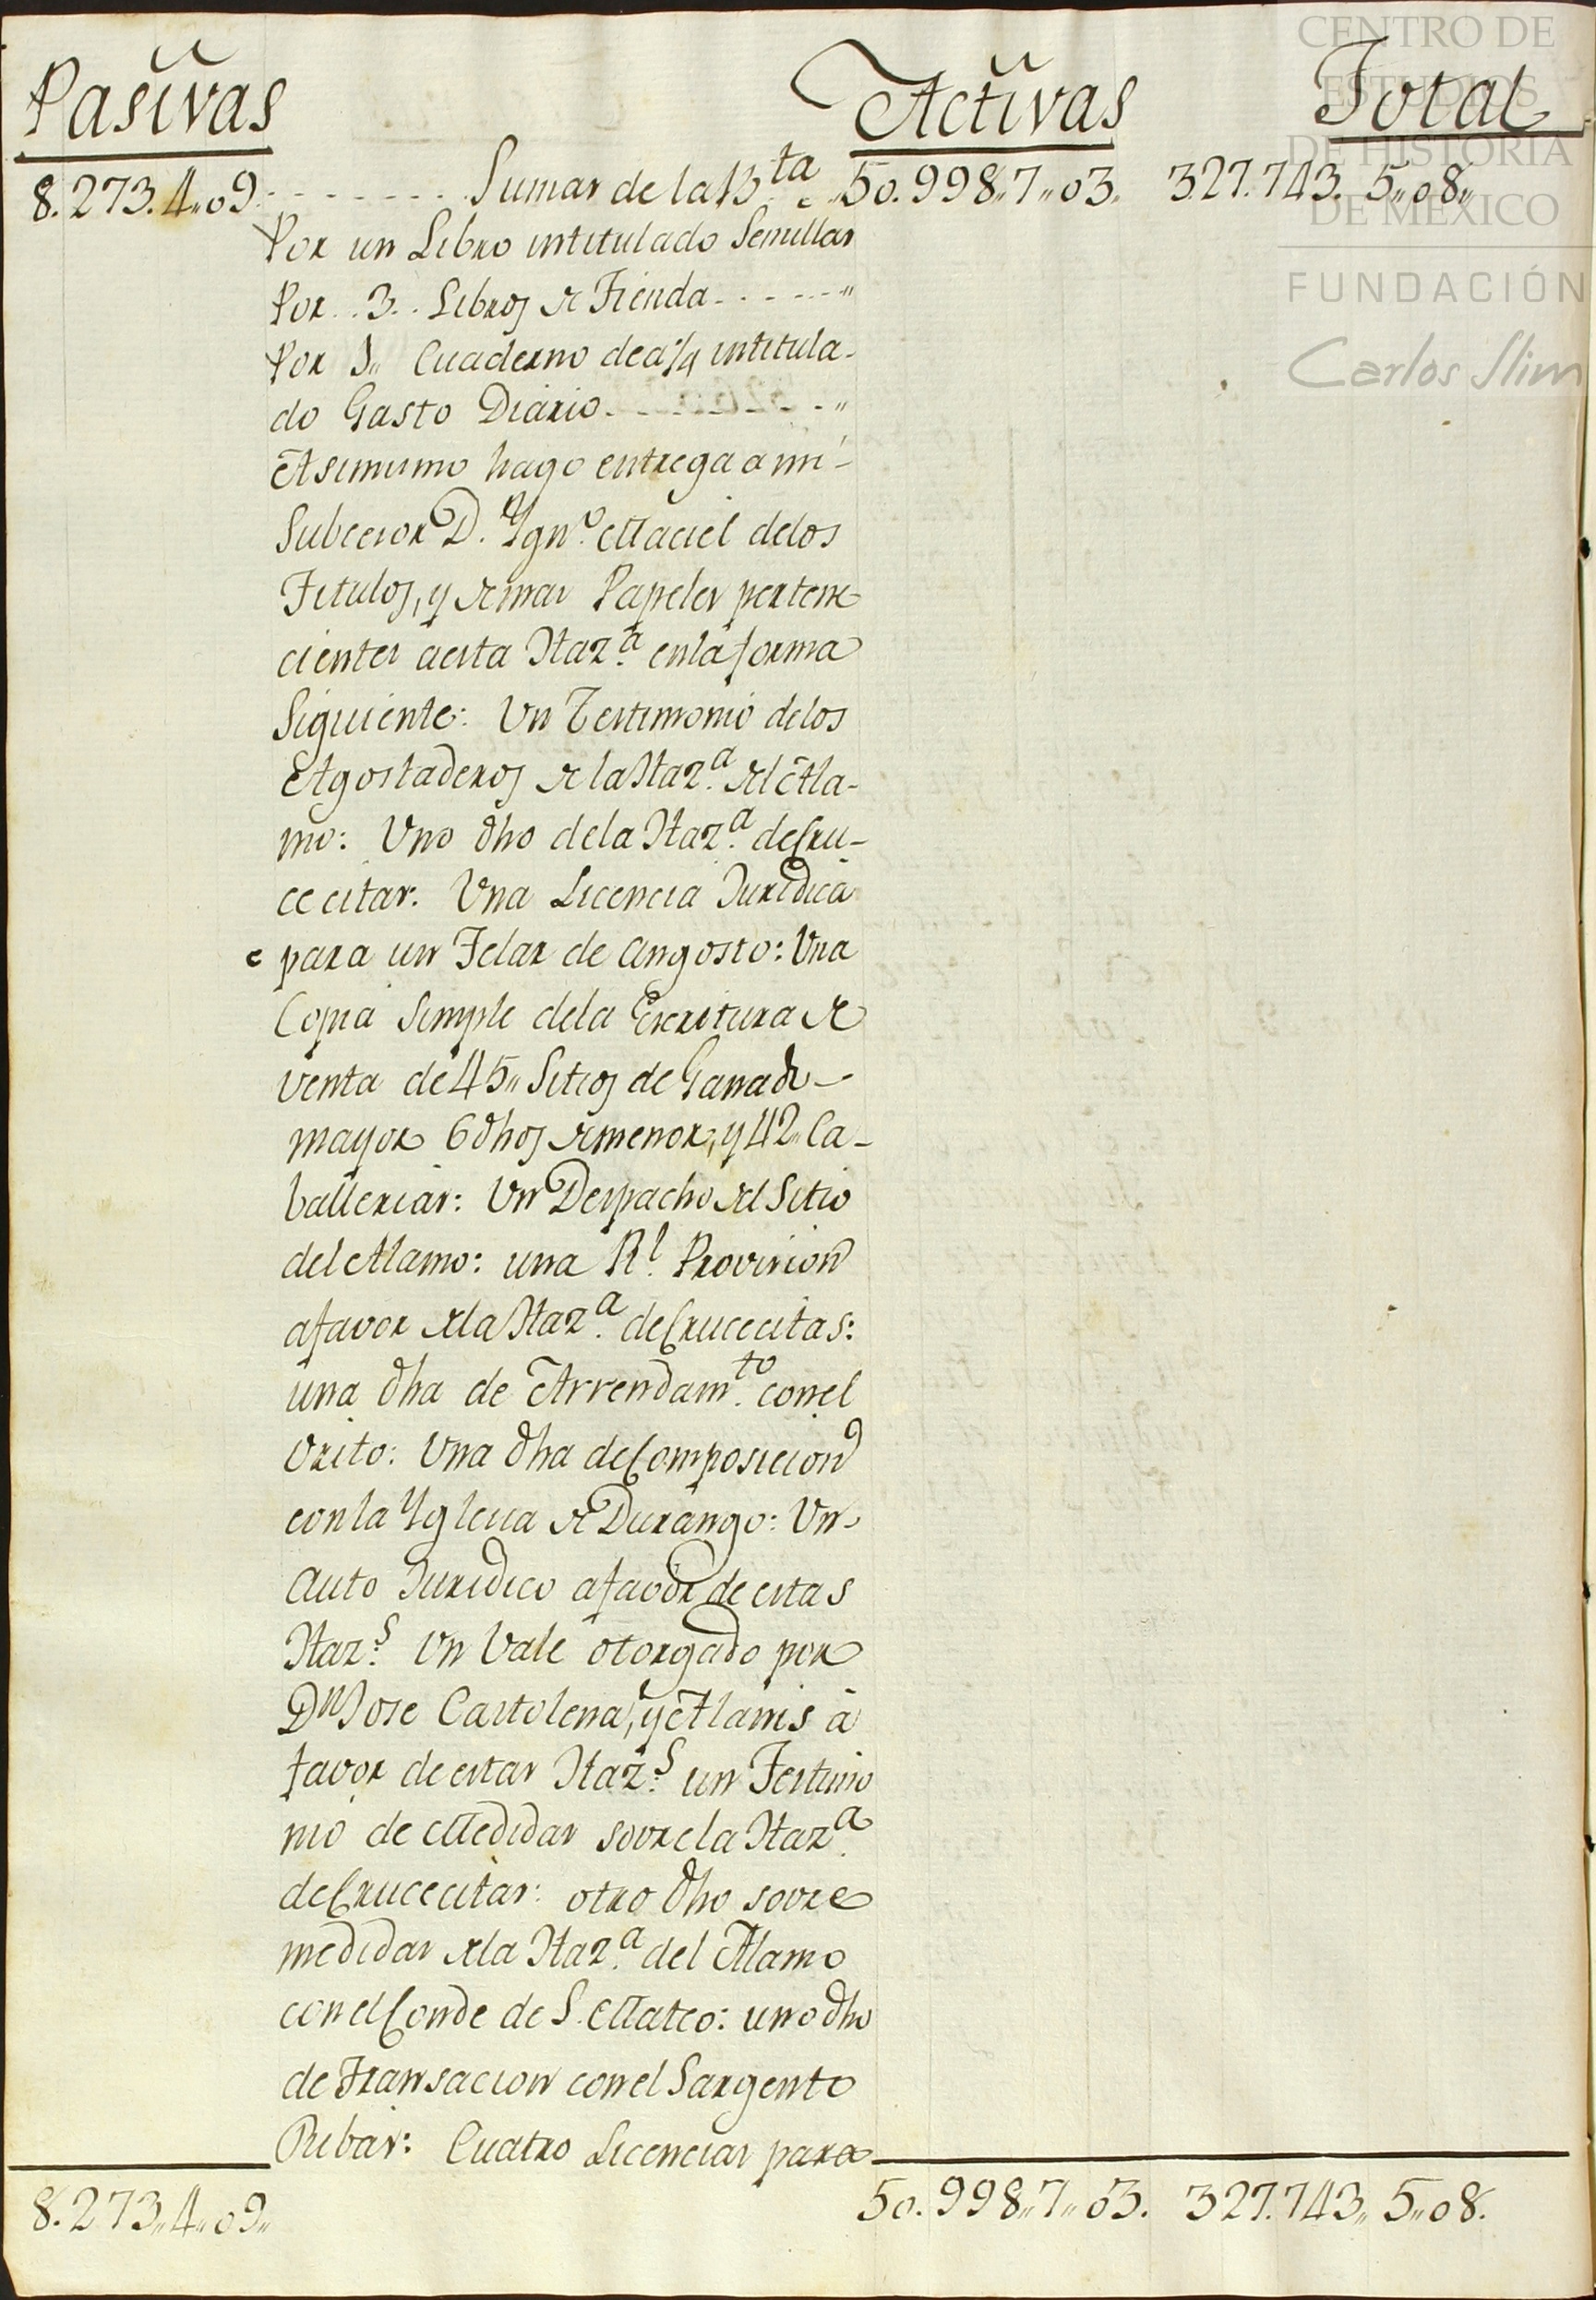 Pasivas Activas Total
8.273.4,,09. - - - - - - - Sumas de la B.ta 50.998,,7,,03. 327.743. 5,,08,,
Por un Libro intitulado Semillas
Por . . 3 . . Libros de Tienda - - - - - - "
Por 1,, Cuaderno de a ¼ intitula-
do Gasto Diario - - - - - - - "
Asimismo hago entrega a mi-
Subcesor D. Ygn.o Maciel delos
Titulos, y demas Papeles pertene
cientes aesta Haz.a enla forma
Siguiente: Un Testimonio delos
Agostaderos de la Haz.a del Ala-
mo: Uno dho dela Haz.a deCru-
cecitas. Una Licencia Juridica
para un Telar de angosto: Una
Copia Simple dela Escritura de
venta de 45,, Sitios de Ganado-
mayor 6 dhos demenor, y 42,, Ca-
ballerias: Un Despacho del Sitio
del Alamo: una R.l Provision
afavor dela Haz.a deCrucecitas:
una dha de Arrendam.to conel
Orito: Una dha deComposicion
con la Yglesia de Durango: Un
Auto Juridico afavor de estas
Haz.s Un Vale otorgado por
Dn Jose Castolena, y Alanis à
favor de estas Haz.s un Testimo
nio de Medidas sovre la Haz.a
deCrucecitas: otro dho sovre
medidas dela Haz.a del Alamo
conel Conde de S. Mateo: uno dho
de Transacion conel Sargento
Ribas: Cuatro Licencias para
8.273,,4,,09,, 50.998,,7,,03. 327.743,, 5,,08.
CENTRO DE
ESTUDIOS
DE HISTORIA
DE MÉXICO
FUNDACIÓN
Carlos Slim